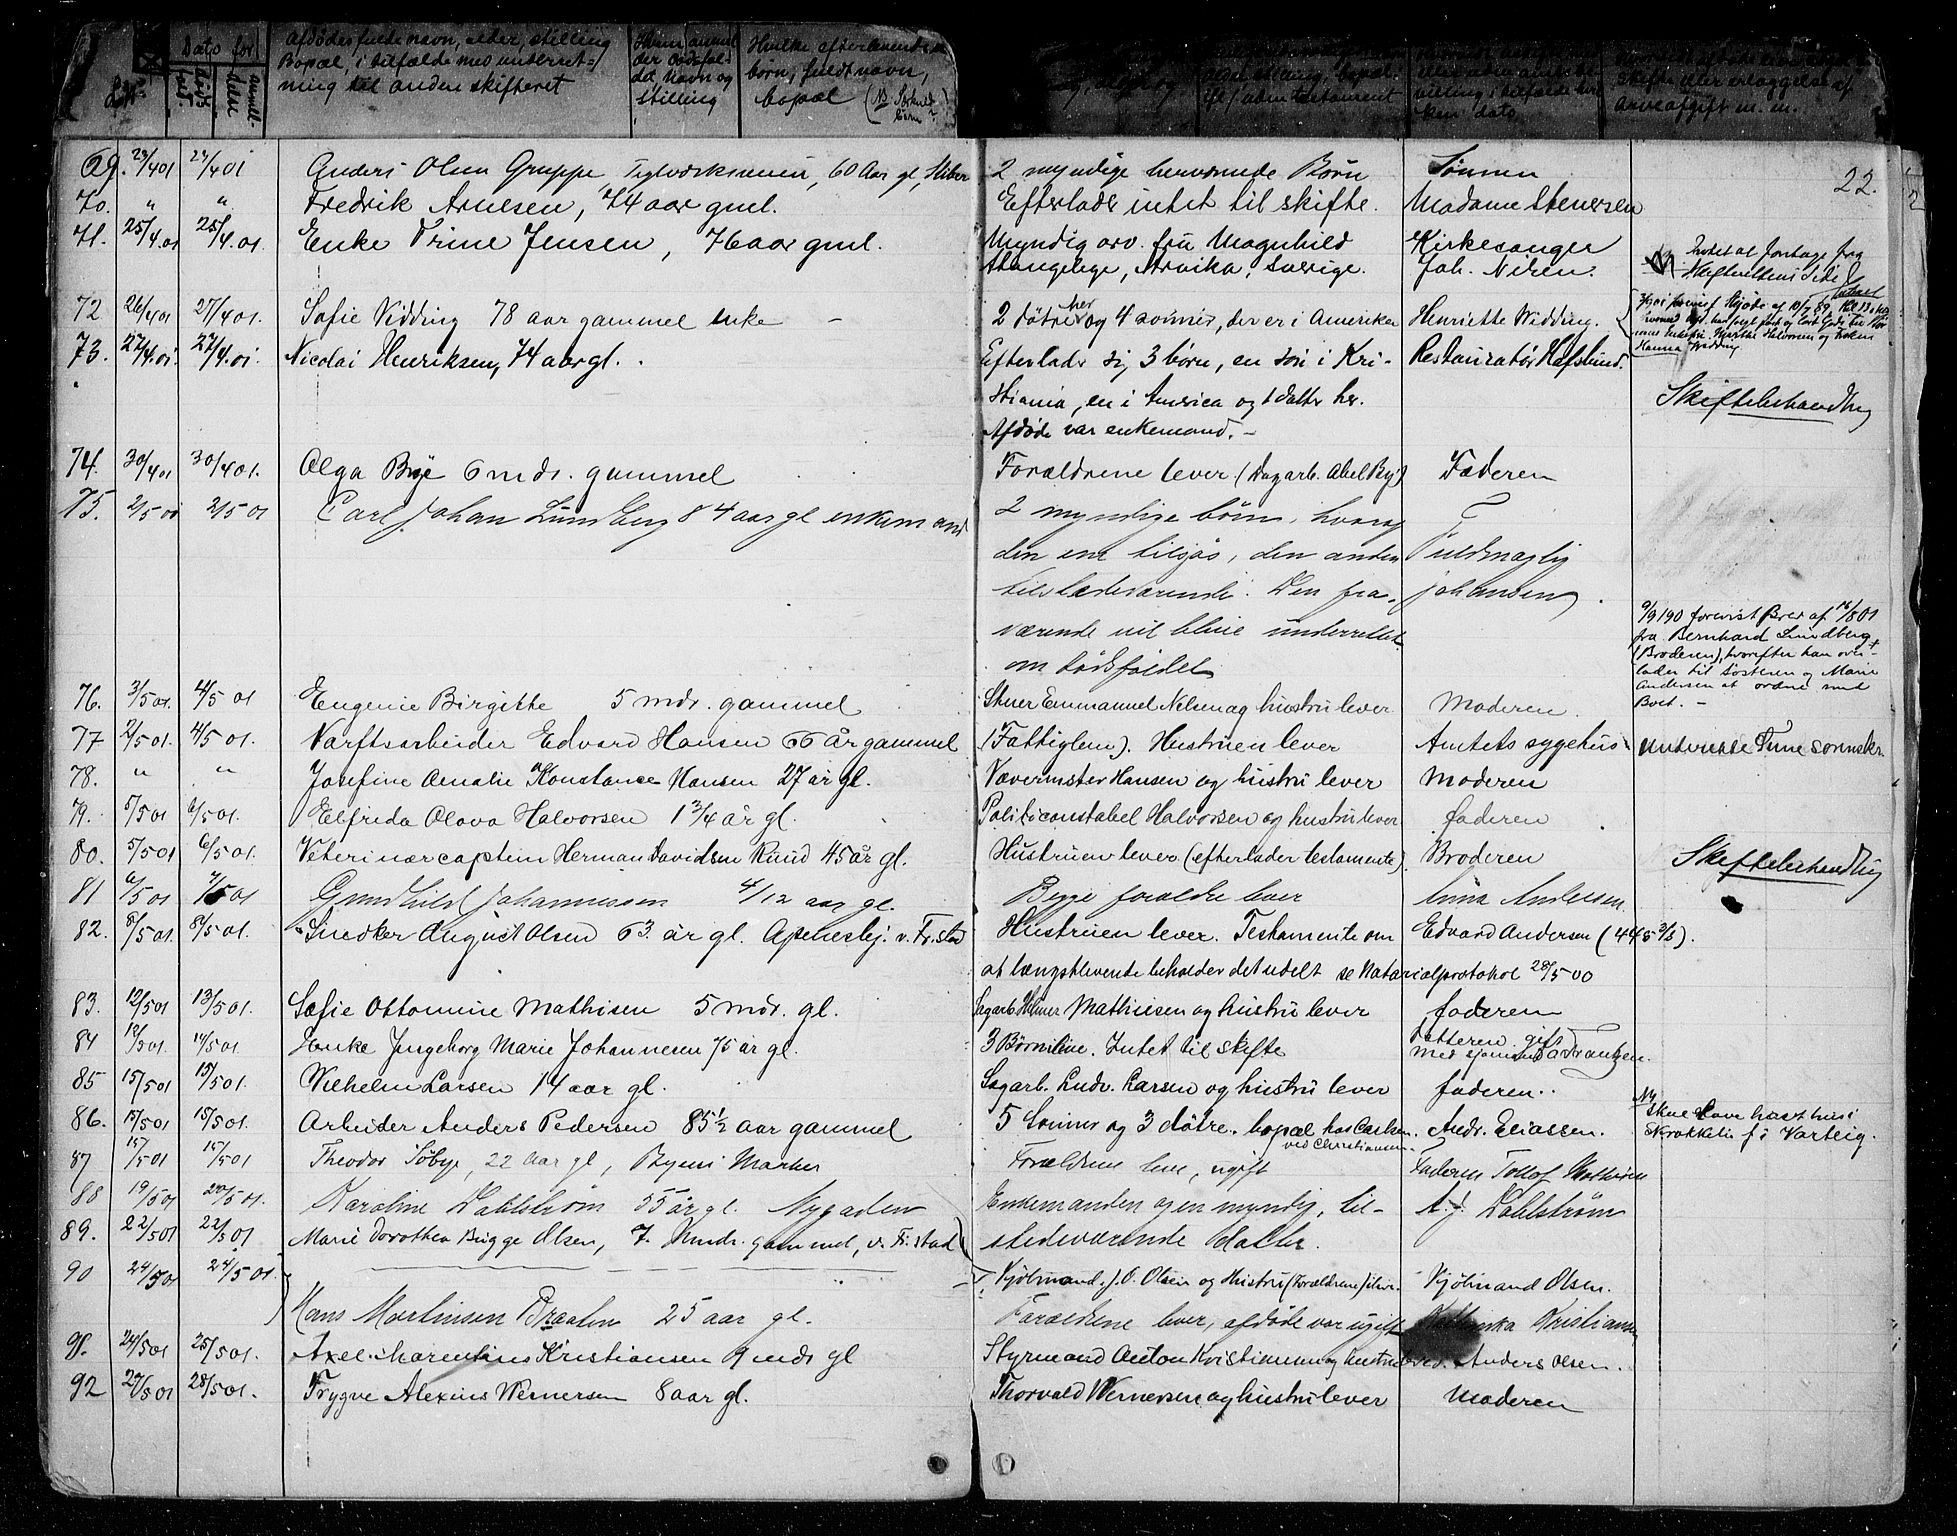 Dato for
Afdødes fulde navn, alder, stilling
Bopæl, i tilfælde med underret-
ning til anden skifteret
Hvem anmel
der dødsfal-
det, Navn og
stilling
Hvilke efterlevende
børn, fuldt navn,
bopæl
skifte eller erlæggelse af
arveafgift m. m.
22.
69. 23/4 01 24/4 01 Anders Olsen Gruppe, 60 Aar gl, 2 myndige henværende Børn Sønnen
70. " " Fredrik Arnesen, 74 aar gml. Efterlader intet til skifte. Madame Stenersen
71. 25/4.01 25/4.01 Enke Trine Jensen, 76 aar gml. Myndig arv. fru Magnhild Kirkesanger
Arvika, Sverige. Joh. Nilsen.
Intet at foretage fra
Skifterettens Side
72 26/4 01 27/4 01. Sofie Vidding 78 aar gammel enke 2 døtre her og 4 sønner, der er i Amerika Henriette Widding.
73. 27/4.01 27/4.01. Nicolai Henriksen, 74 aar gl. Efterlader sig 3 børn, en søn i Kri- Restauratør Hafslund.
stiania, en i America og 1 datter her. Skiftebehandling
Afdøde var enkemand. —
74. 30/4 01 30/4 01. Olga Bye 6 mdr. gammel Forældrene lever (Dagarb. Abel Bye) Faderen
75. 2/5 01 2/5 01 Carl Johan Lundberg 84 aar gl enkemand 2 myndige børn, hvoraf
den ene tilsjøs, den anden Fuldmægtig
tilstedeværende. Den fra- Johansen.
værende vil blive underrettet
om dødsfaldet
forevist Brev af 16/8 01
fra Bernhard Lundberg
(Broderen), hvorefter han over-
lader til Søsteren og Marie
Andersen at ordne med
Boet. —
76. 3/5 01. 4/5 01 Eugenie Birgitte 5 mdr. gammel Emmanuel Nelsen og hustru lever Moderen.
77 2/5 01. 4/5 01. Værftsarbeider Edvard Hansen 66 år gammel (Fattiglem). Hustruen lever Amtets sygehus. Underrette Tune sorenskr.
78. " " Josefine Amalie Konstance Hansen 27 år gl. Vævermster Hansen og hustru lever Moderen
79. 5/5 01 6/5 01. Elfrida Olava Halvorsen 1 3/4 år gl. Politiconstabel Halvorsen og hustru lever faderen
80. 5/5 01 6/5 01. Veterinærcaptein Herman Davidsen Ruud 45 år gl. Hustruen lever (efterlader testamente). Broderen Skiftebehandling
81 6/5 01 7/5 01 Gundhild Johannessen 4/12 aar gl. Begge forældre lever Anna Andersen
82. 8/5 01. 8/5 01. Snedker August Olsen 63 år gl. v. Fr.stad Hustruen lever. Testamente om Edvard Andersen
at længstlevende beholder det udelt se Notarialprotokol 28/5 00
83. 12/5 01 13/5 01. Sofie Ottomine Mathisen 5 mdr. gl. Mathiesen og hustru lever faderen
84 12/5 01 14/5 01. Enke Ingeborg Marie Johannesen 75 år gl. 3 Børn i live. Intet til skifte Datteren gift
med sjømand
85 15/5 01 15/5 01. Vilhelm Larsen 14 aar gl. Sagarb. Ludv. Larsen og hustru lever faderen.
86. 15/5 01 15/5 01. Arbeider Anders Pedersen 85 1/2 aar gammel 5 Sønner og 3 døtre. bopæl hos Carlsen Andr. Eliassen.
ved Christiansen
Skal have havt hus i
i Varteig.
87 15/5 01 15/5 01. Theodor Søbye, 22 aar gl, Byens Marker Forældrene leve, ugift Faderen
88 19/5 01 20/5 01. Karoline Dahlstrøm 55 år gl. Nygaden Enkemanden og en myndig, til- A. J. Dahlstrøm
89. 22/5 01 22/5 01 Marie Dorothea Bugge Olsen, 7. Mndr. gammel, v. Fr.stad stedeværende datter.
90 24/5 01 24/5 01. Kjølmand J. O. Olsen og Hustru (Forældrene) ilive. Kjølmand Olsen.
Hans Martinsen Braaten 25 aar gl. Forældrene lever, afdøde var ugift Kristiansen
91. 24/5 01 25/5 01. Axel Kristiansen 9 mdr gl Styrmand Anton Kristiansen og hustru lever. Anders Olsen.
92 27/5 01 28/5 01. Trygve Alexius Wernersen 8 aar gl. Thorvald Wernersen og hustru lever Moderen